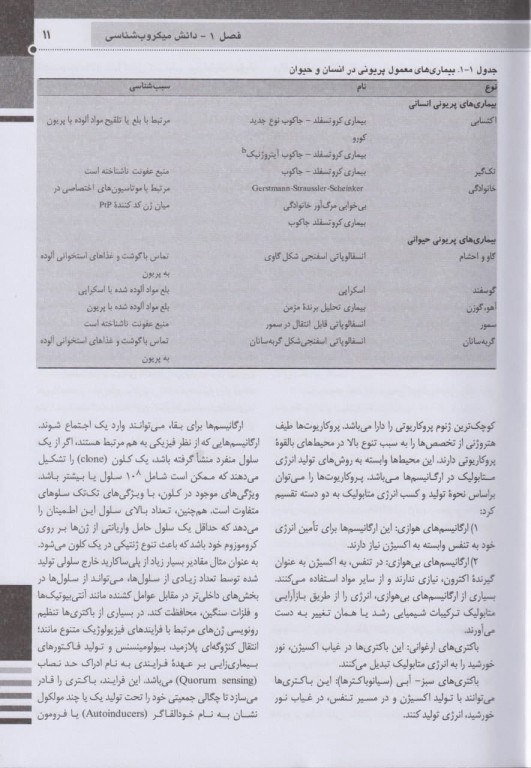 فصل ۱ - دانش میکروب‌شناسی
۱۱
جدول ۱-۱. بیماری‌های معمول پریونی در انسان و حیوان
نوع نام سبب‌شناسی
بیماری‌های پریونی انسانی
اکتسابی بیماری کروتسفلد - جاکوب نوع جدید مرتبط با بلع یا تلقیح مواد آلوده یا پریون
کورو
بیماری کروتسفلد - جاکوب آیتروژنیک b
تک‌گیر بیماری کروتسفلد - جاکوب منبع عفونت ناشناخته است
خانوادگی Gerstmann-Straussler-Scheinker مرتبط با موتاسیون‌های اختصاصی در
بی‌خوابی مرگ‌آور خانوادگی میان ژن کد کنندهٔ PrP
بیماری کروتسفلد جاکوب
بیماری‌های پریونی حیوانی
گاو و احشام انسفالوپاتی اسفنجی شکل گاوی تماس با گوشت و غذاهای استخوانی آلوده
به پریون
گوسفند اسکراپی بلع مواد آلوده شده با اسکراپی
آهو، گوزن بیماری تحلیل برندهٔ مزمن بلع مواد آلوده شده با پریون
سمور انسفالوپاتی قابل انتقال در سمور منبع عفونت ناشناخته است
گربه‌سانان انسفالوپاتی اسفنجی‌شکل گربه‌سانان تماس با گوشت و غذاهای استخوانی آلوده
به پریون
کوچک‌ترین ژنوم پروکاریوتی را دارا می‌باشد. پروکاریوت‌ها طیف
هتروژنی از تخصص‌ها را به سبب تنوع بالا در محیط‌های بالقوهٔ
پروکاریوتی دارند. این محیط‌ها وابسته به روش‌های تولید انرژی
متابولیک در ارگانیسم‌ها می‌باشد. پروکاریوت‌ها را می‌توان
براساس نحوهٔ تولید و کسب انرژی متابولیک به دو دسته تقسیم
کرد:
۱) ارگانیسم‌های هوازی: این ارگانیسم‌ها برای تأمین انرژی
خود به تنفس وابسته به اکسیژن نیاز دارند.
۲) ارگانیسم‌های بی‌هوازی: در تنفس، به اکسیژن به عنوان
گیرندهٔ الکترون، نیازی ندارند و از سایر مواد استفاده می‌کنند.
بسیاری از ارگانیسم‌های بی‌هوازی، انرژی را از طریق بازآرایی
متابولیک ترکیبات شیمیایی رشد یا همان تغییر به دست
می‌آورند.
باکتری‌های ارغوانی: این باکتری‌ها در غیاب اکسیژن، نور
خورشید را به انرژی متابولیک تبدیل می‌کنند.
باکتری‌های سبز- آبی (سیانوباکترها): این باکتری‌ها
می‌توانند با تولید اکسیژن و در مسیر تنفس، در غیاب نور
خورشید، انرژی تولید کنند.
ارگانیسم‌ها برای بقا، می‌توانند وارد یک اجتماع شوند.
ارگانیسم‌هایی که از نظر فیزیکی به هم مرتبط هستند، اگر از یک
سلول منفرد منشأ گرفته باشد، یک کلون (clone) را تشکیل
می‌دهند که ممکن است شامل ۱۰۸ سلول یا بیشتر باشد.
ویژگی‌های موجود در کلون، با ویژگی‌های تک‌تک سلوهای
متفاوت است. هم‌چنین، تعداد بالای سلول این اطمینان را
می‌دهد که حداقل یک سلول حامل واریانتی از ژن‌ها بر روی
کروموزوم خود باشد که باعث تنوع ژنتیکی در یک کلون می‌شود.
به عنوان مثال مقادیر بسیار زیاد از پلی‌ساکارید خارج سلولی تولید
شده توسط تعداد زیادی از سلول‌ها، می‌تواند از سلول‌ها در
بخش‌های داخلی‌تر در مقابل عوامل کشنده مانند آنتی‌بیوتیک‌ها
و فلزات سنگین، محافظت کند. در بسیاری از باکتری‌ها تنظیم
رونویسی ژن‌های مرتبط با فرایندهای فیزیولوژیک متنوع مانند؛
انتقال کنژوگه‌ای پلازمید، بیولومینسنس و تولید فاکتورهای
بیماری‌زایی بر عهدهٔ فرایندی به نام ادراک حد نصاب
(Quorum sensing) می‌باشد. این فرایند، باکتری را قادر
می‌سازد تا چگالی جمعیتی خود را تحت تولید یک یا چند مولکول
نشان به نام خودالقاگر (Autoinducers) یا فرومون